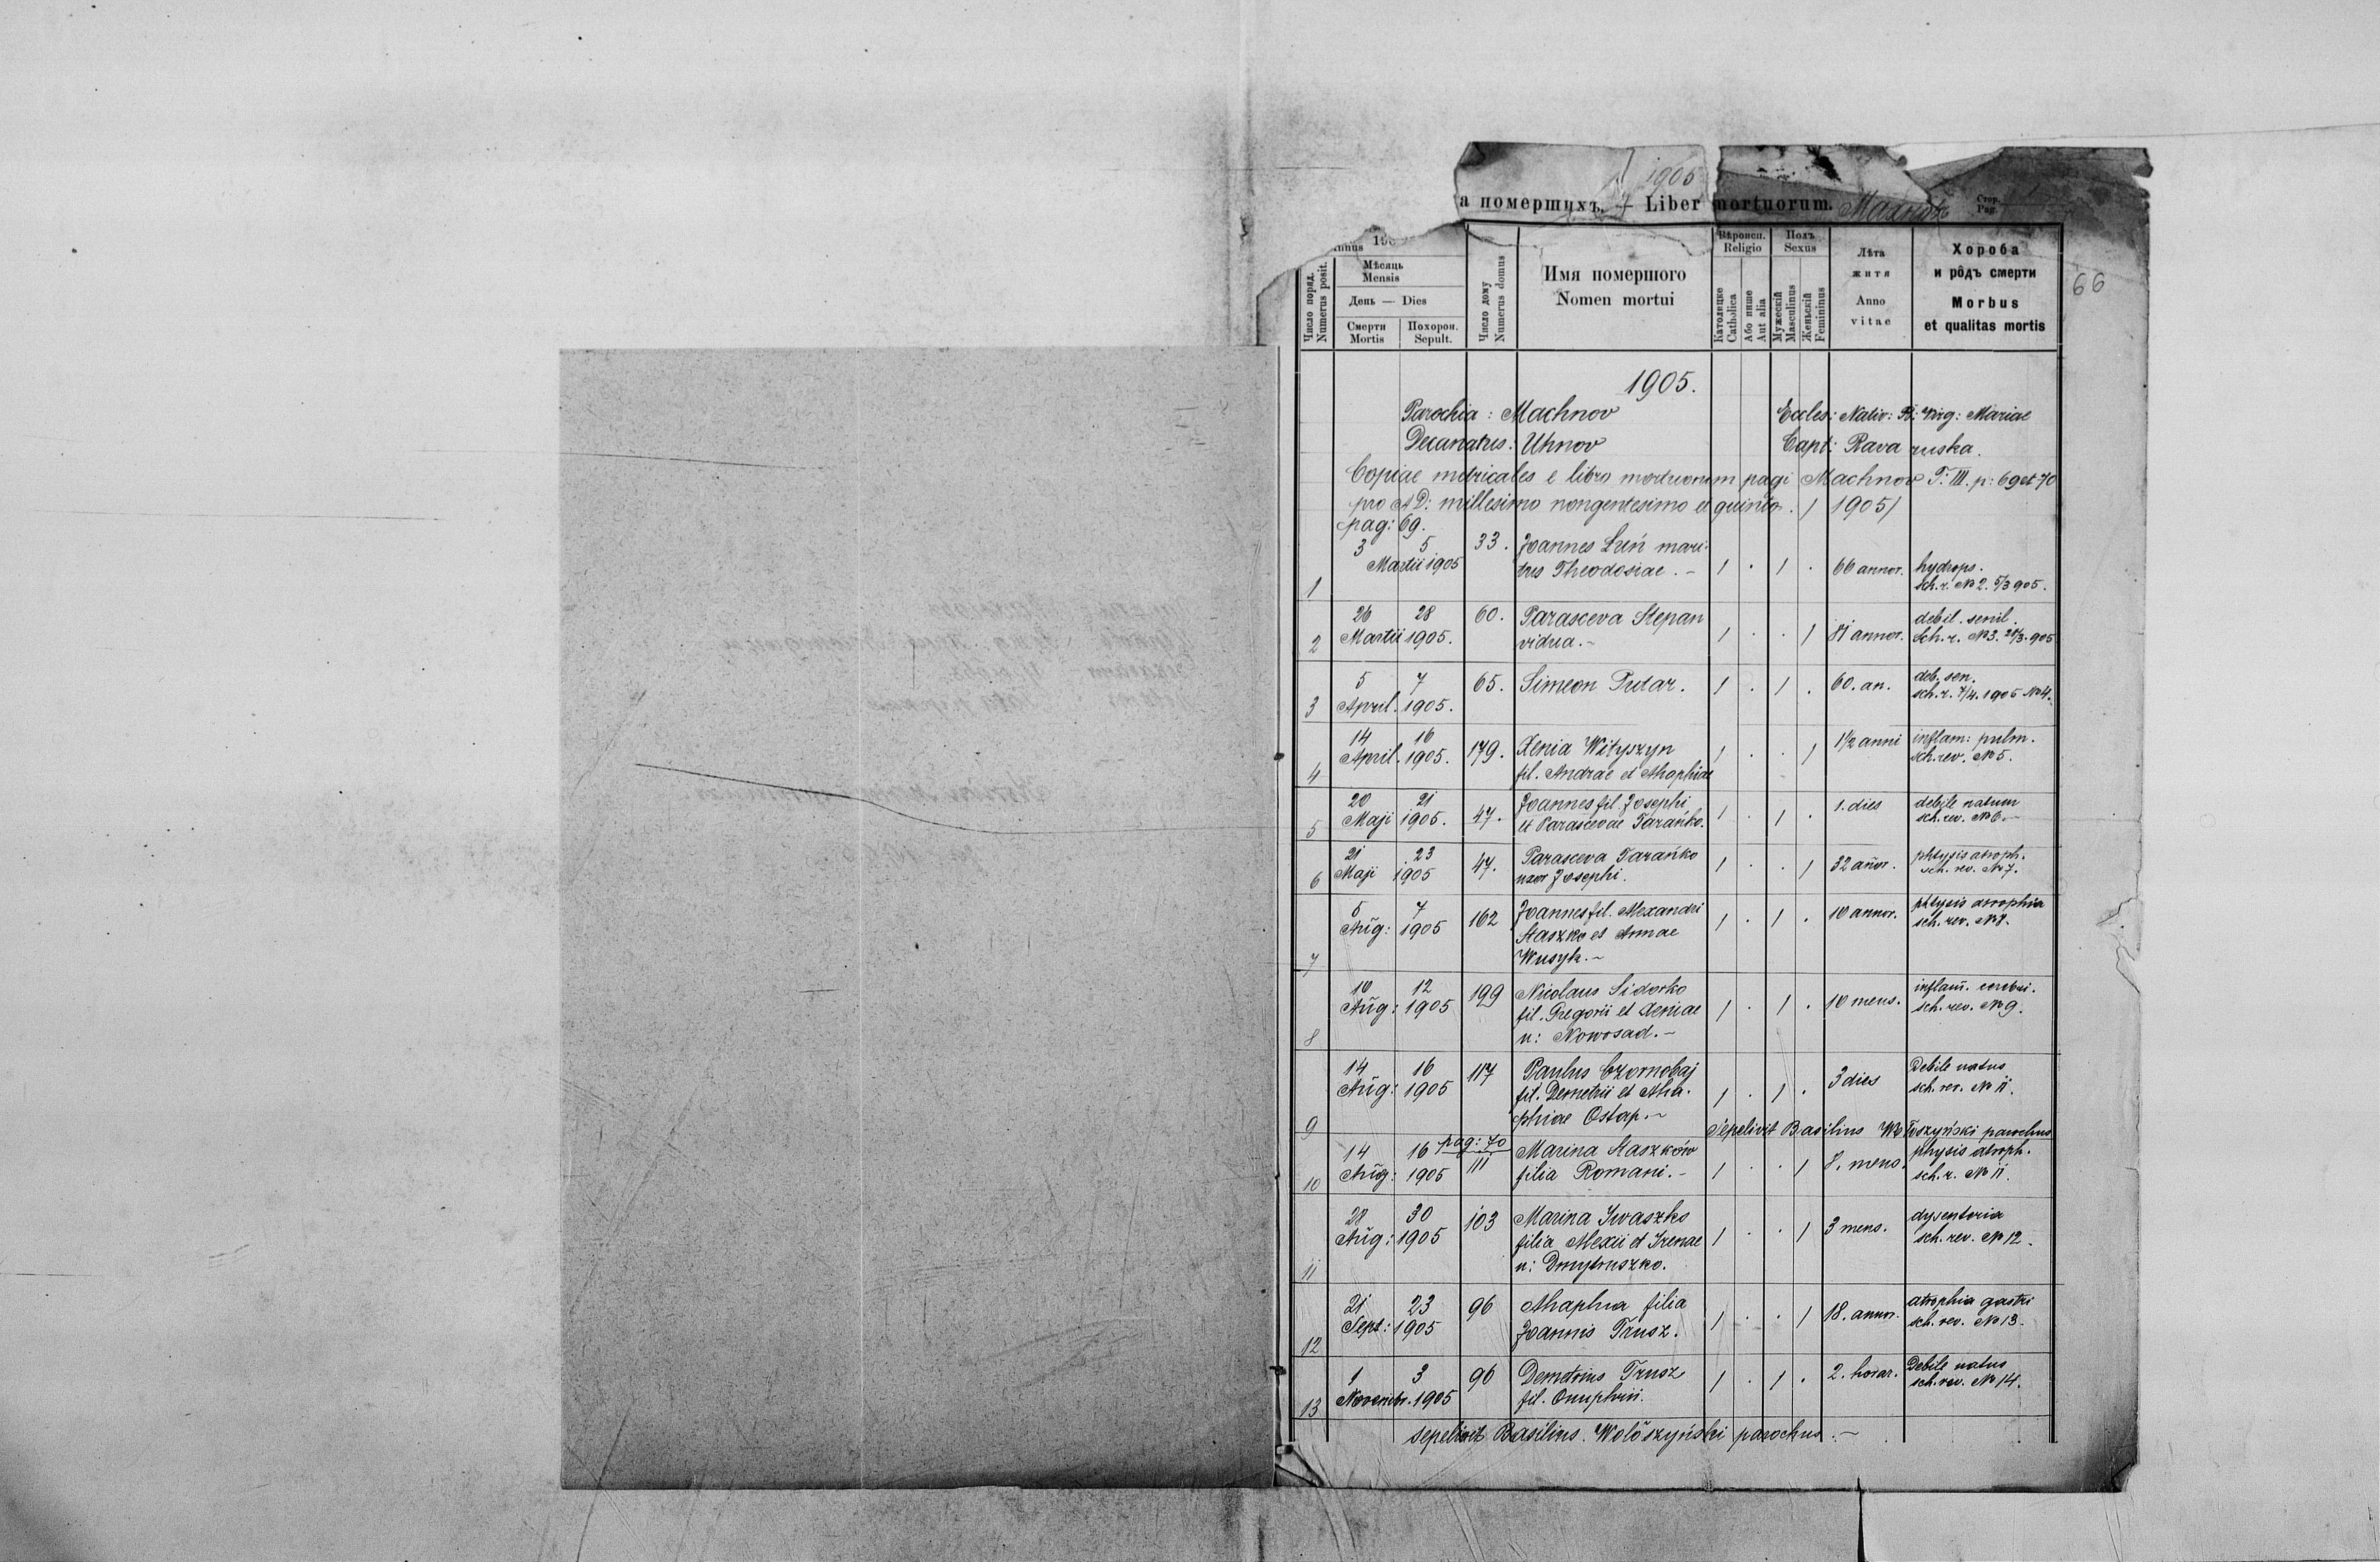 1905
а помершихъ. — Liber mortuorum.
Стор.
Pag.
66
nnus 190
Мѣсяць
Mensis
День — Dies
Смерти
Mortis
Похорон.
Sepult.
Число поряд.
Numerus posit.
Число дому
Numerus domus
Имя помершого
Nomen mortui
Вѣроисп.
Religio
Католицке
Catholica
Або инше
Aut alia
Полъ
Sexus
Мужескій
Masculinus
Женьскій
Femininus
Лѣта
житя
Anno
vitae
Хороба
и рôдъ смерти
Morbus
et qualitas mortis
1905.
Parochia : Machnov Eccles: Nativ: B: Virg: Mariae
Decanatus: Uhnov Capt: Rava ruska.
Copiae metricales e libro mortuorum pagi Machnov T: III. p: 69 et 70
pro AD: millesimo nongentesimo et quinto. / 1905/
pag: 69.
3 5 33. Joannes Leń mari-
Martii 1905 tus Theodosiae . - 1 . 1 . 66 annor. hydrops.
1 sch. r. No 2. 5/3 905.
26 28 60. Parasceva Stepan debil. senil.
2 Martii 1905. vidua. ~ 1 . . 1 81 annor. Sch. r. No 3. 28/3. 905
5 7 65. Simeon Putar. 1 . 1 . 60. an. deb. sen.
3 April. 1905. sch. r. 7/4. 1905 No 4.
14 16 179. Xenia Wityszyn 1 . . 1 1 1/2 anni inflam: pulm.
4 April. 1905. fil. Andrae et Ahaphiae sch. rev. No 5.
20 21 47. Joannes fil. Josephi 1 . 1 . 1. dies debile natum
5 Maji 1905. et Parascevae Tarańko. sch. rev. No 6. ~
21 23 47. Parasceva Tarańko 1 . . 1 32 añor. phtysis atroph.
6 Maji 1905 uxor Josephi. sch. rev. No 7.
5 7 162 Joannes fil. Alexandri 1 . 1 . 10 annor. phtysis atrophia
Aug: 1905 Staszko et Annae sch. rev. No 8.
7 Wusyk. ~
10 12 199 Nicolaus Sidorko inflam. cerebri.
Aug: 1905 fil. Gregorii et Xeniae 1 . 1 . 10 mens. sch. rev. No 9.
8 n: Nowosad. ~
14 16 117 Paulus Czornobaj 3 dies Debile natus
Aug: 1905 fil. Demetrii et Aha- 1 . 1 . sch. rev. No 11.
9 phiae Ostap. ~
Sepelivit Basilius Wołoszyński parochus
pag: 70
14 16 111 Marina Staszków physis atroph.
10 Aug: 1905 filia Romani. - 1 . . 1 8. mens. sch. r. No 11.
28 30 103 Marina Iwaszko dysenteria
Aug: 1905 filia Alexii et Irenae 1 . . 1 3 mens. sch. rev. No 12.
11 n: Dmytruszko.
21 23 96 Ahaphia filia 1 . . 1 18. annor. atrophia gastri
12 Sept: 1905 Joannis Trusz. sch. rev. No 13.
1 3 96 Demetrius Trusz 1 . 1 . 2. horar. Debile natus
13 Novembr. 1905 fil. Onuphrii. sch. rev. No 14.
sepelivit Basilius Wołoszyński parochus. ~